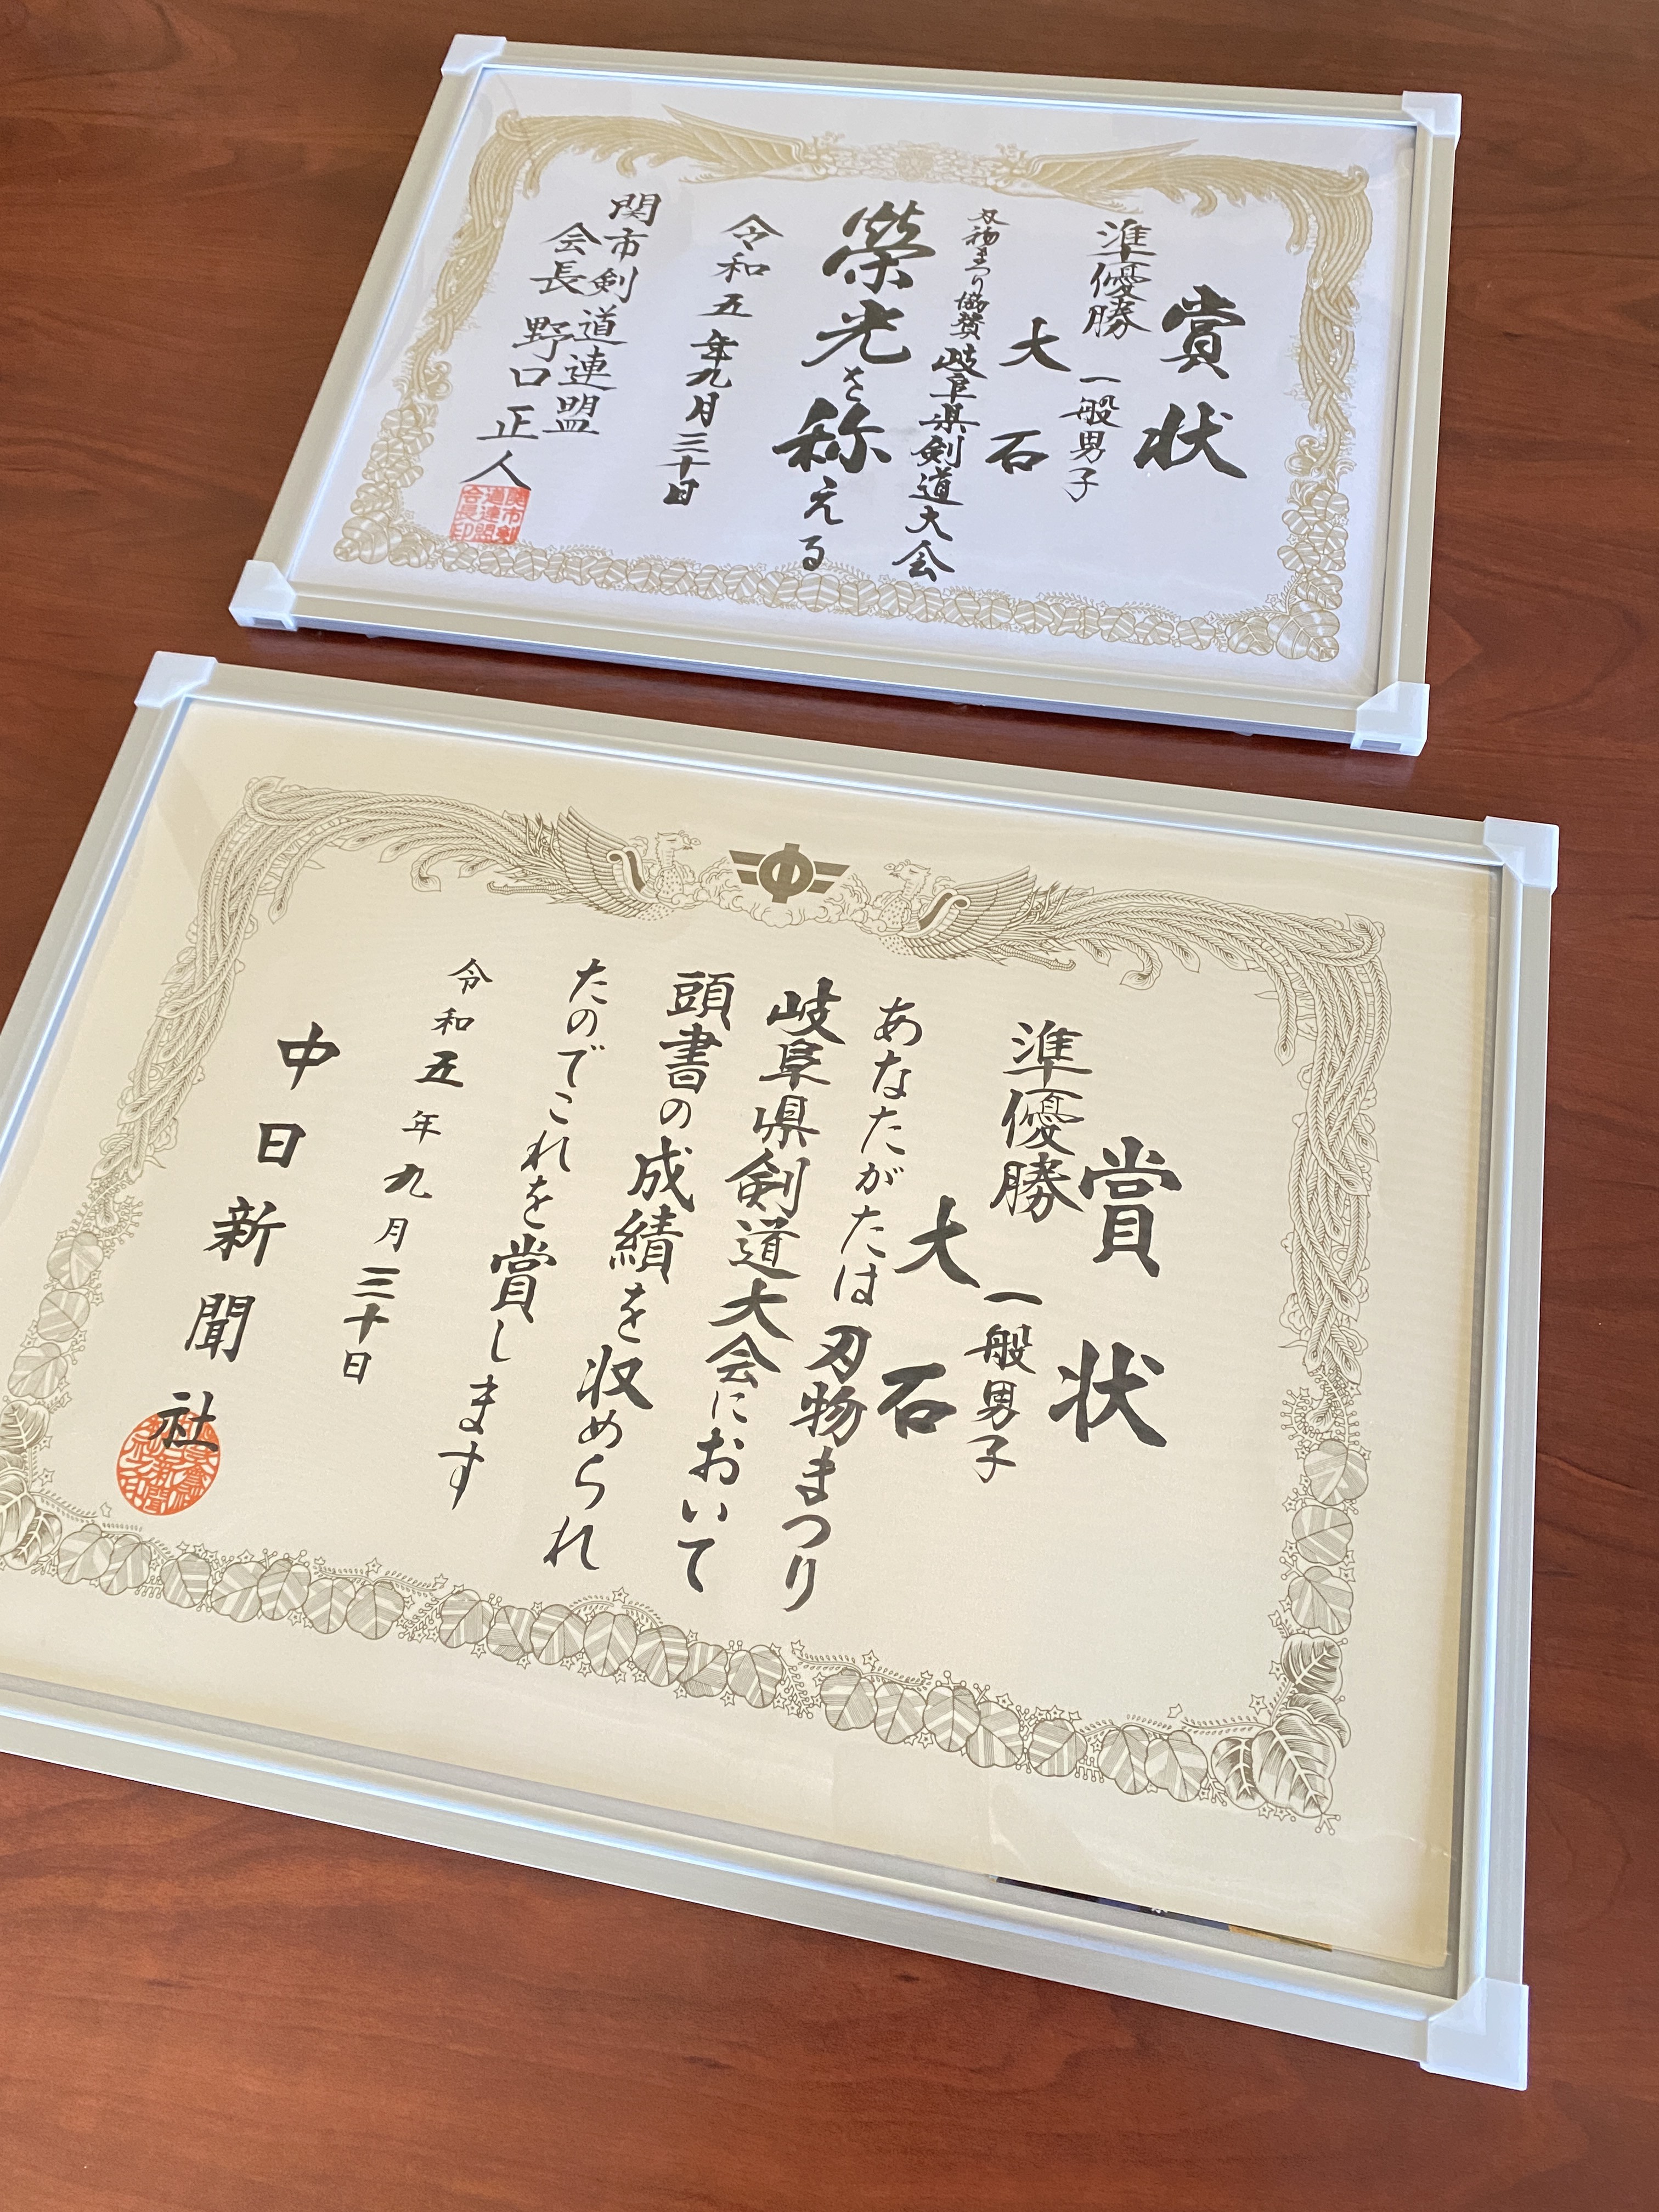 賞状
準優勝
一般男子
大石
刃物まつり協賛岐阜県剣道大会
榮光を称える
令和五年九月三十日
関市剣道連盟
会長野口正人
関市剣
道連盟
会長印
中
賞状
準優勝
一般男子
大石
あなたがたは刃物まつり
岐阜県剣道大会において
頭書の成績を収められ
たのでこれを賞します
令和五年九月三十日
中日新聞社